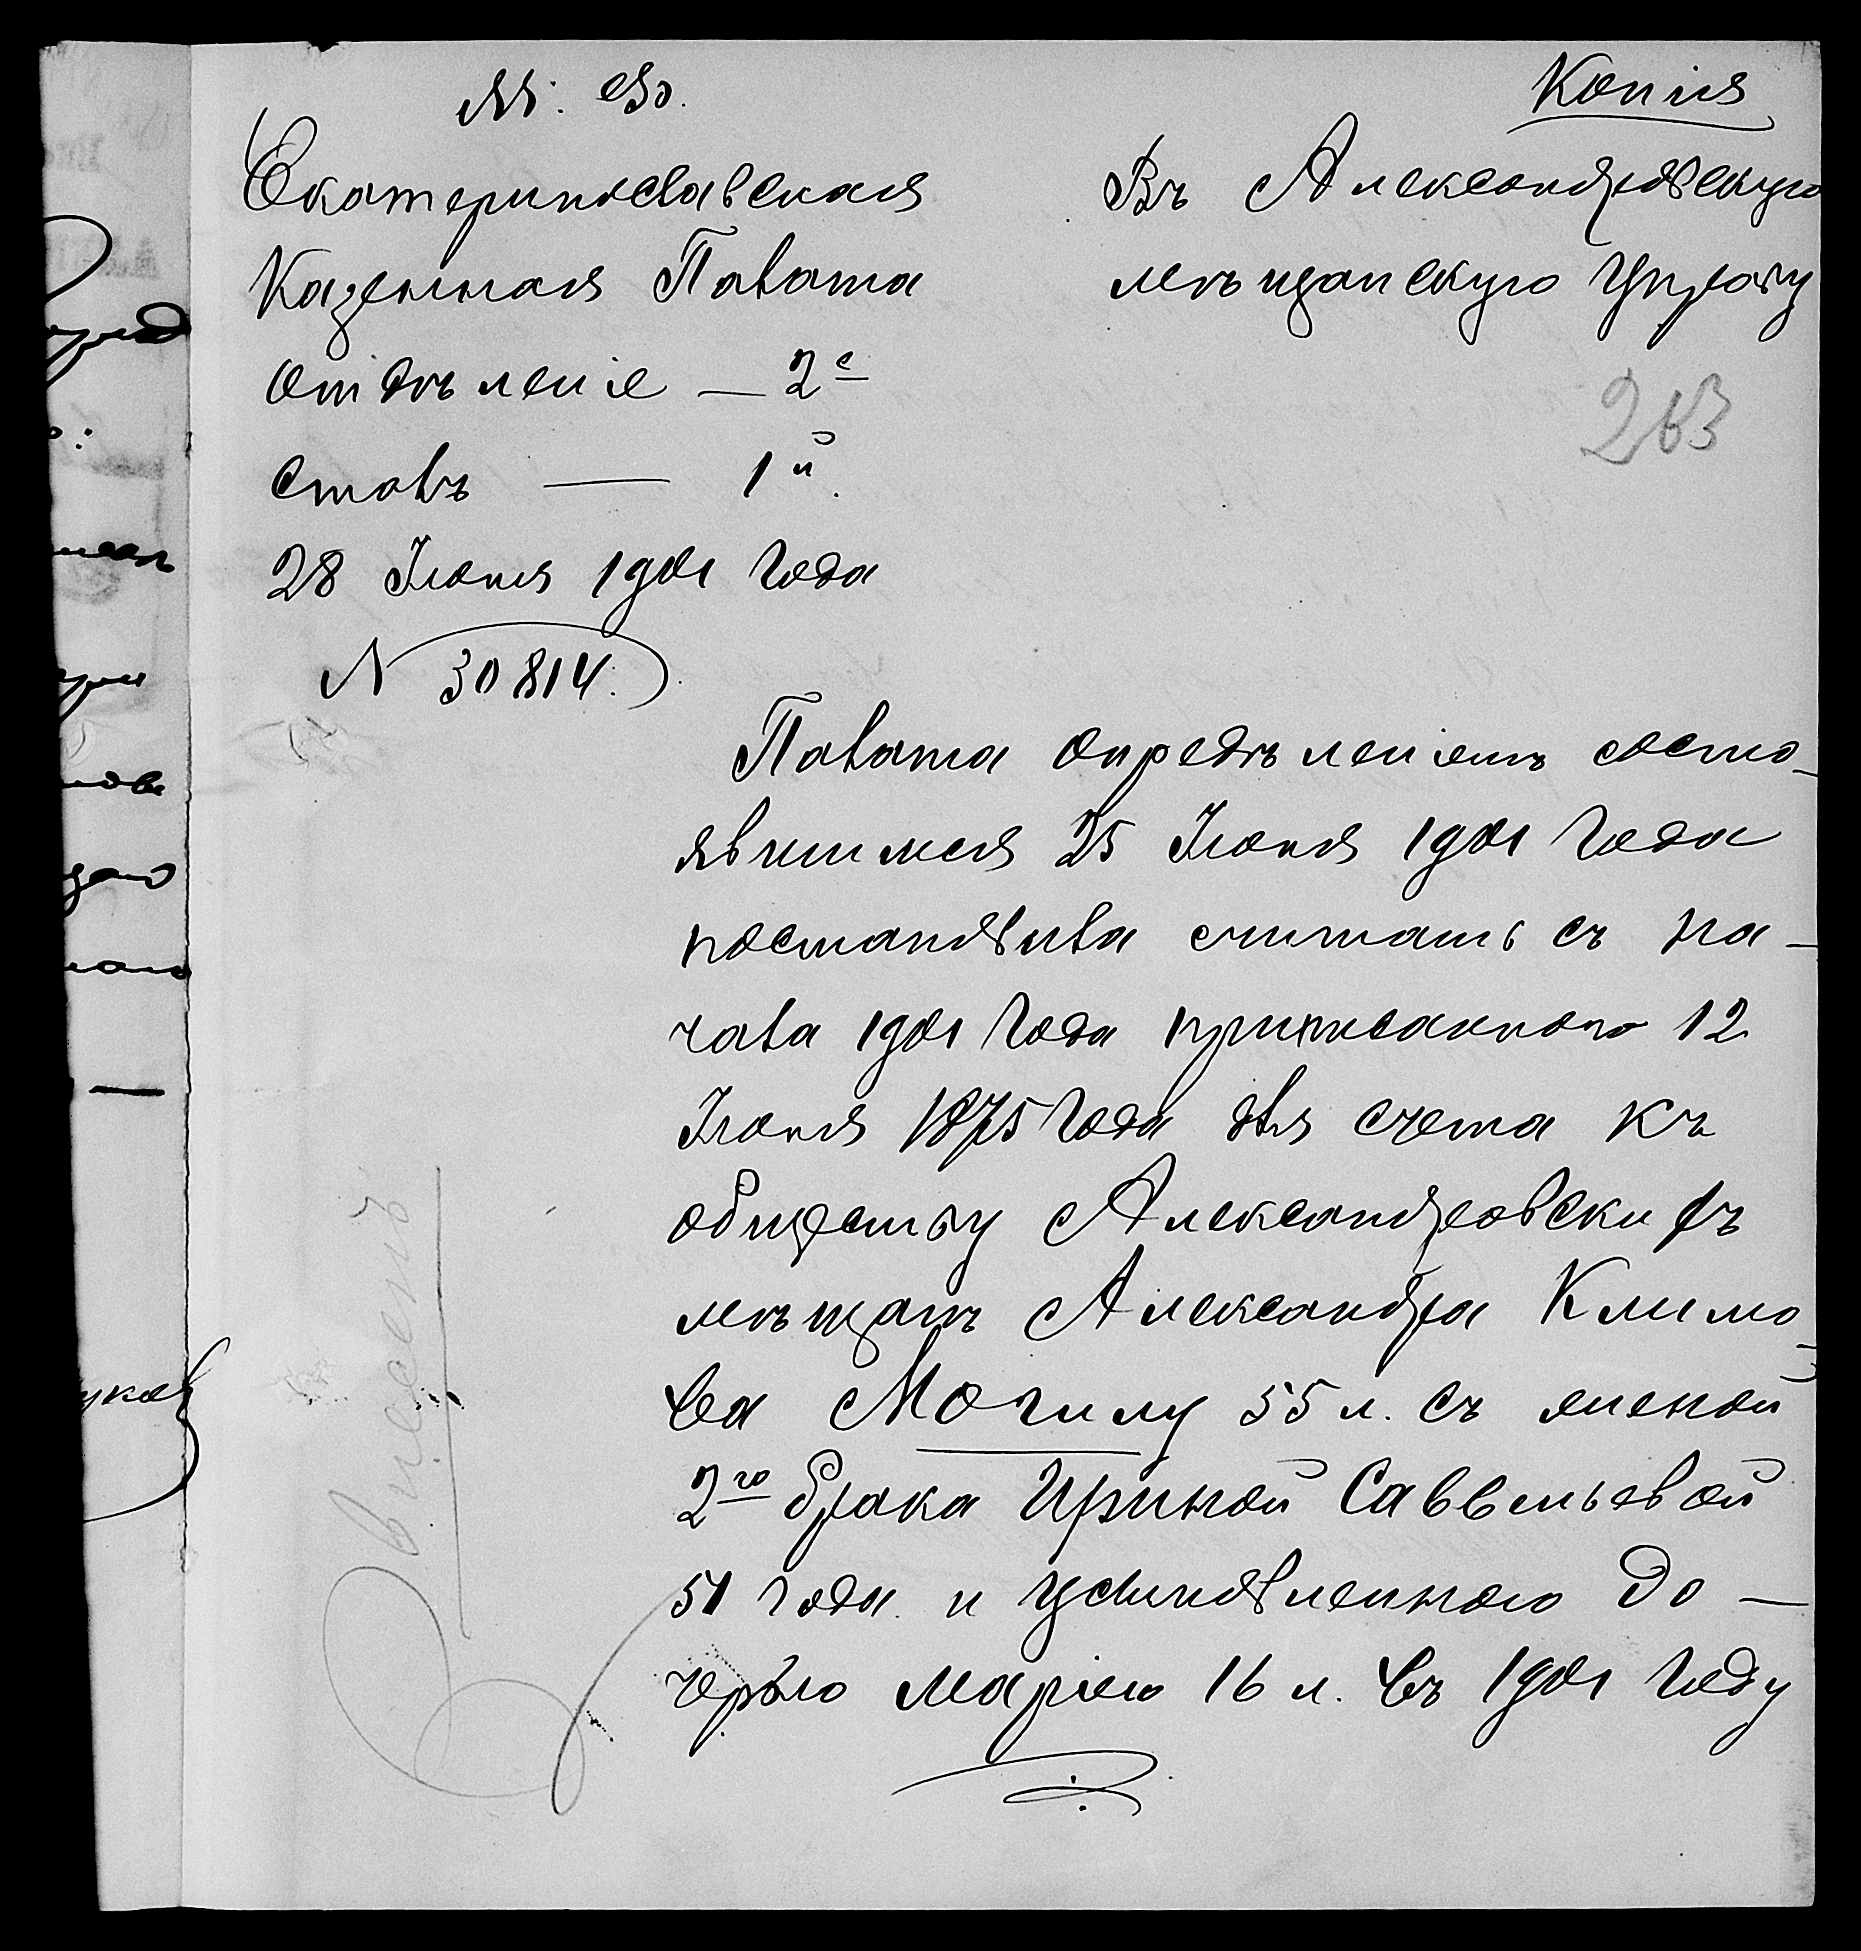 Копія
М. Ф.
Екатеринославская
Казенная Палата
Отдѣленіе — 2е
Столъ — 1й.
28 Іюня 1901 года
N 30814.
Въ Александровскую
мѣщанскую Управу
263
Палата опредѣленіемъ состо-
явшимся 25 Іюня 1901 года
постановила считать съ на-
чала 1901 года приписаннаго 12
Іюня 1875 года для счета къ
обществу Александровскихъ
мѣщанъ Александра Климо-
ва Могилу 55 л. съ женой
2го брака Ириной Савельевой
51 года и усыновленною до-
черью Маріею 16 л. въ 1901 году
Внесенъ